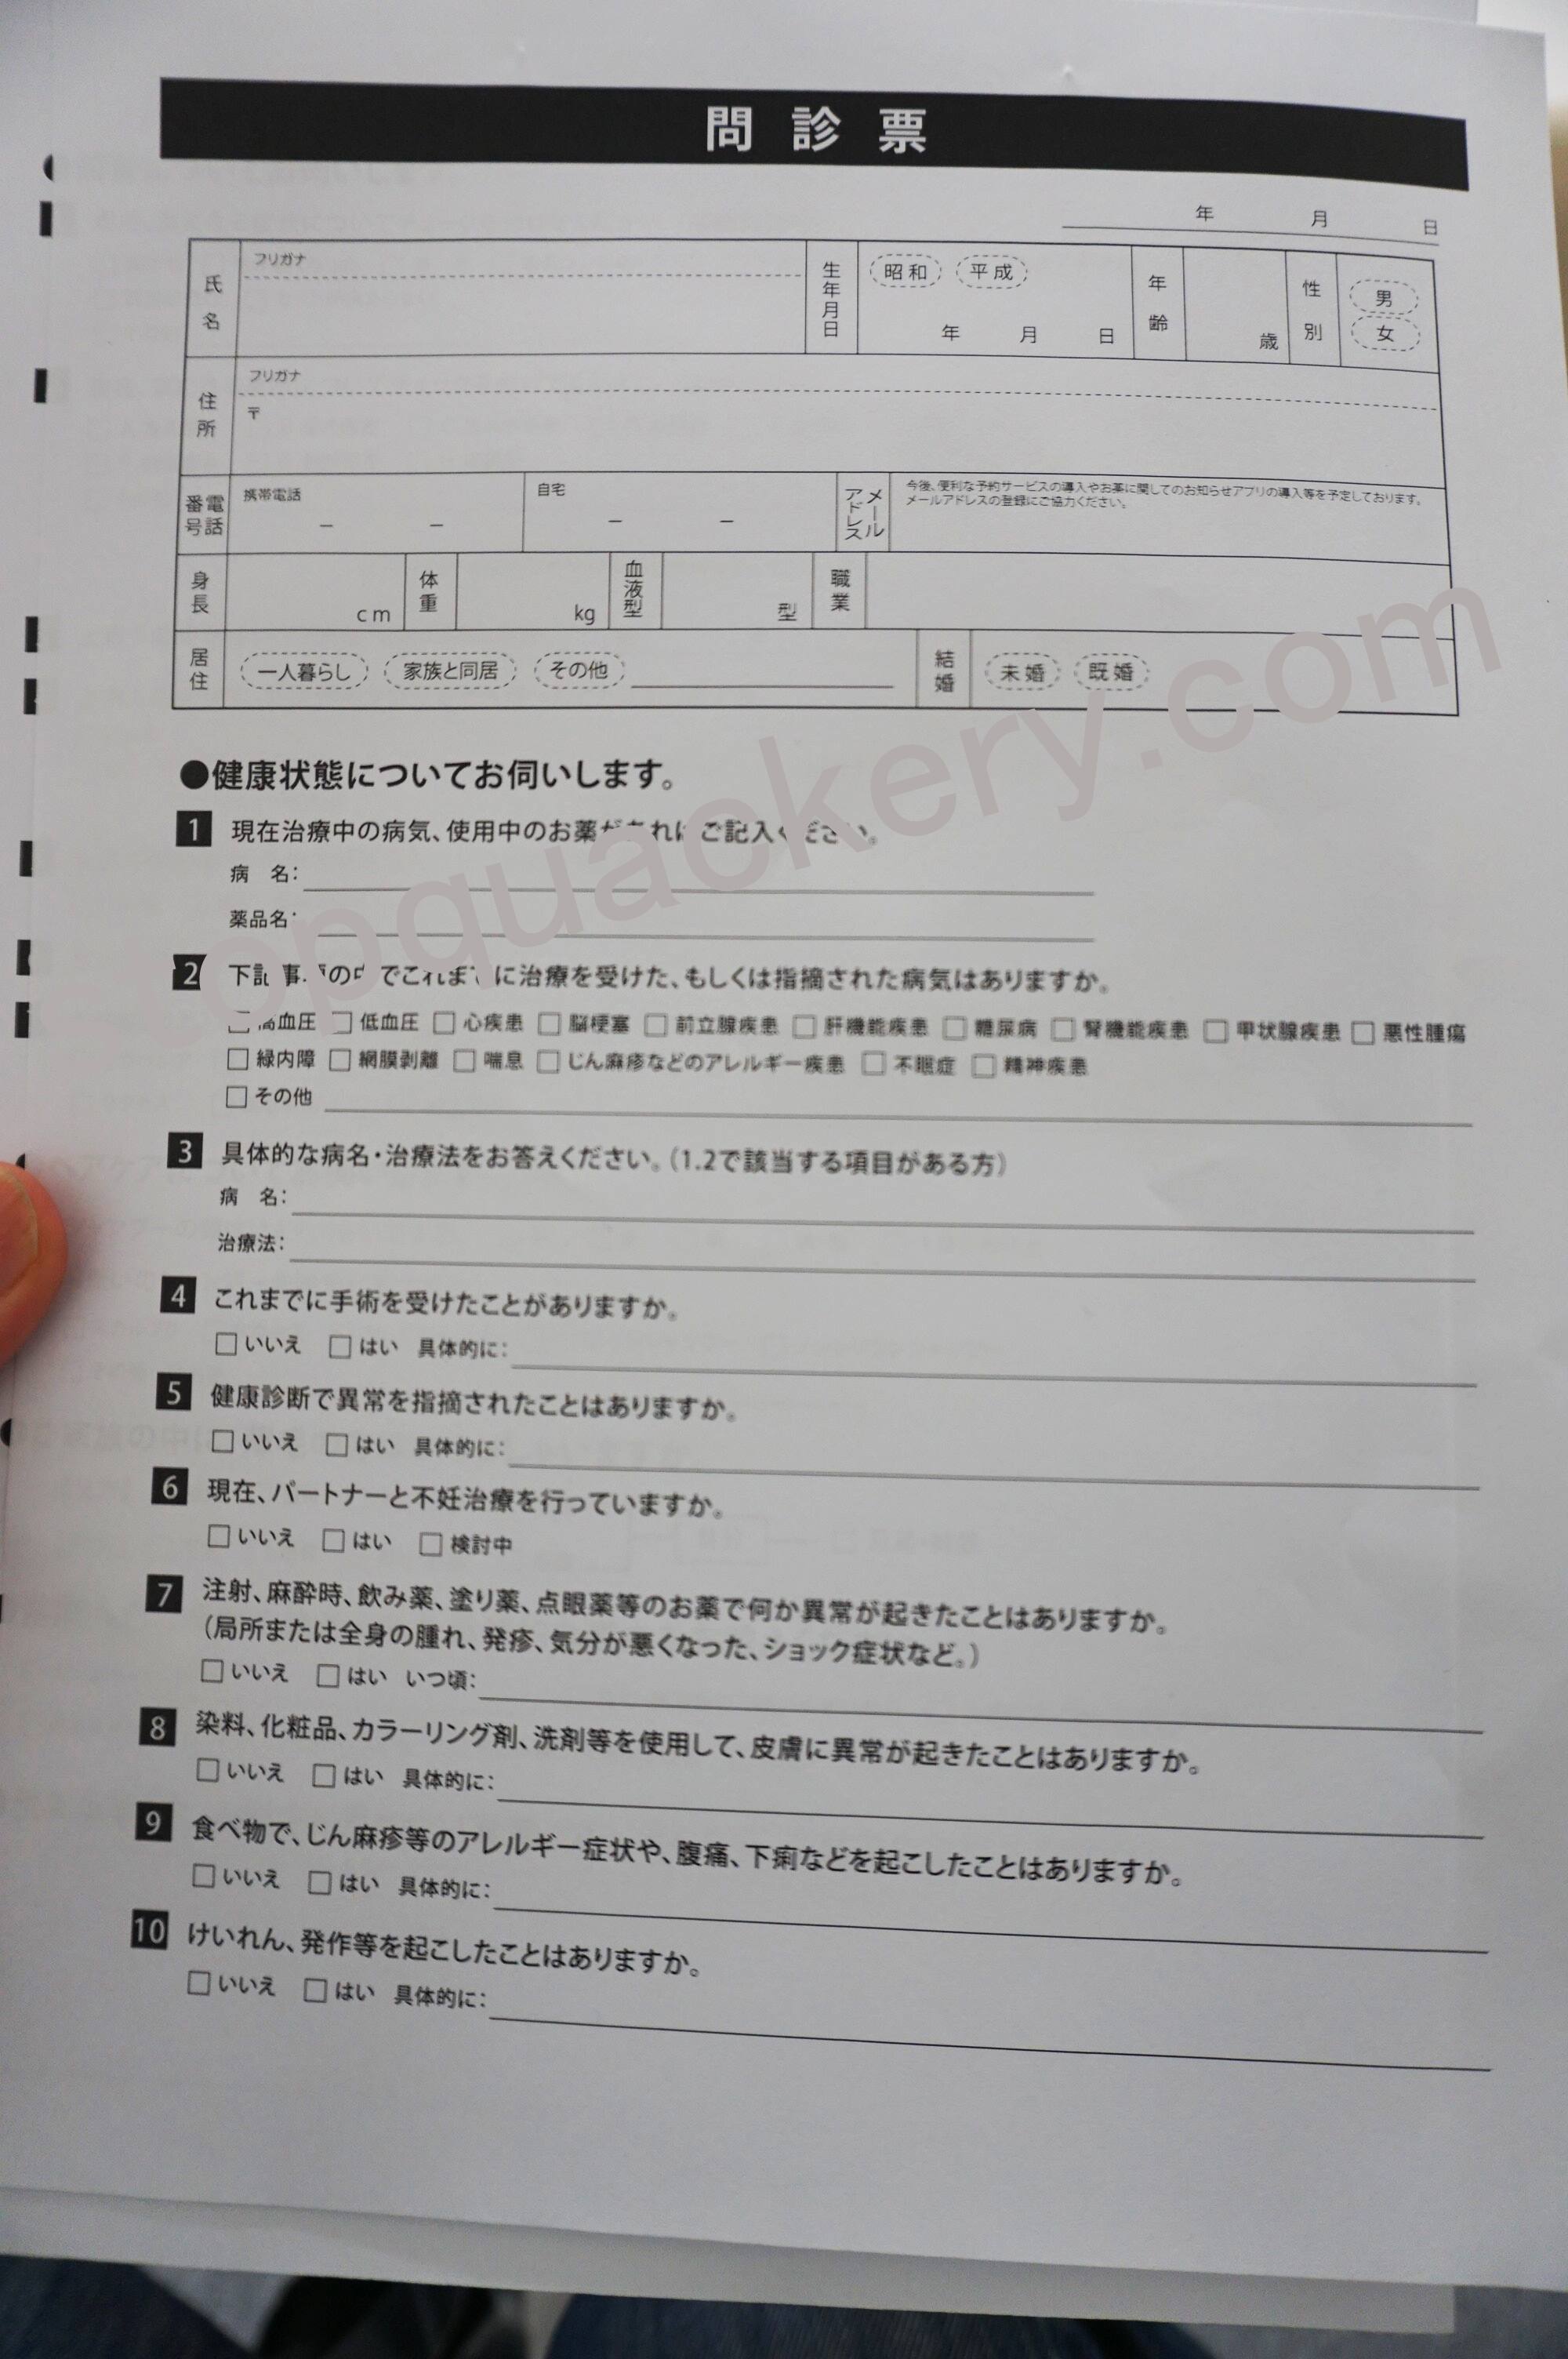 問診票
年 月 日
氏名 フリガナ 生年月日 昭和 平成 年 月 日 年齢 歳 性別 男 女
住所 フリガナ
〒
電話番号 携帯電話 － － 自宅 － － メールアドレス 今後、便利な予約サービスの導入やお薬に関してのお知らせアプリの導入等を予定しております。
メールアドレスの登録にご協力ください。
身長 cm 体重 kg 血液型 型 職業
居住 一人暮らし 家族と同居 その他 結婚 未婚 既婚
●健康状態についてお伺いします。
1 現在治療中の病気、使用中のお薬があればご記入ください。
病 名：
薬品名：
2 下記事項の中でこれまでに治療を受けた、もしくは指摘された病気はありますか。
□高血圧 □低血圧 □心疾患 □脳梗塞 □前立腺疾患 □肝機能疾患 □糖尿病 □腎機能疾患 □甲状腺疾患 □悪性腫瘍
□緑内障 □網膜剥離 □喘息 □じん麻疹などのアレルギー疾患 □不眠症 □精神疾患
□その他
3 具体的な病名・治療法をお答えください。（1.2で該当する項目がある方）
病 名：
治療法：
4 これまでに手術を受けたことがありますか。
□いいえ □はい 具体的に：
5 健康診断で異常を指摘されたことはありますか。
□いいえ □はい 具体的に：
6 現在、パートナーと不妊治療を行っていますか。
□いいえ □はい □検討中
7 注射、麻酔時、飲み薬、塗り薬、点眼薬等のお薬で何か異常が起きたことはありますか。
（局所または全身の腫れ、発疹、気分が悪くなった、ショック症状など。）
□いいえ □はい いつ頃：
8 染料、化粧品、カラーリング剤、洗剤等を使用して、皮膚に異常が起きたことはありますか。
□いいえ □はい 具体的に：
9 食べ物で、じん麻疹等のアレルギー症状や、腹痛、下痢などを起こしたことはありますか。
□いいえ □はい 具体的に：
10 けいれん、発作等を起こしたことはありますか。
□いいえ □はい 具体的に：
opquackery.com